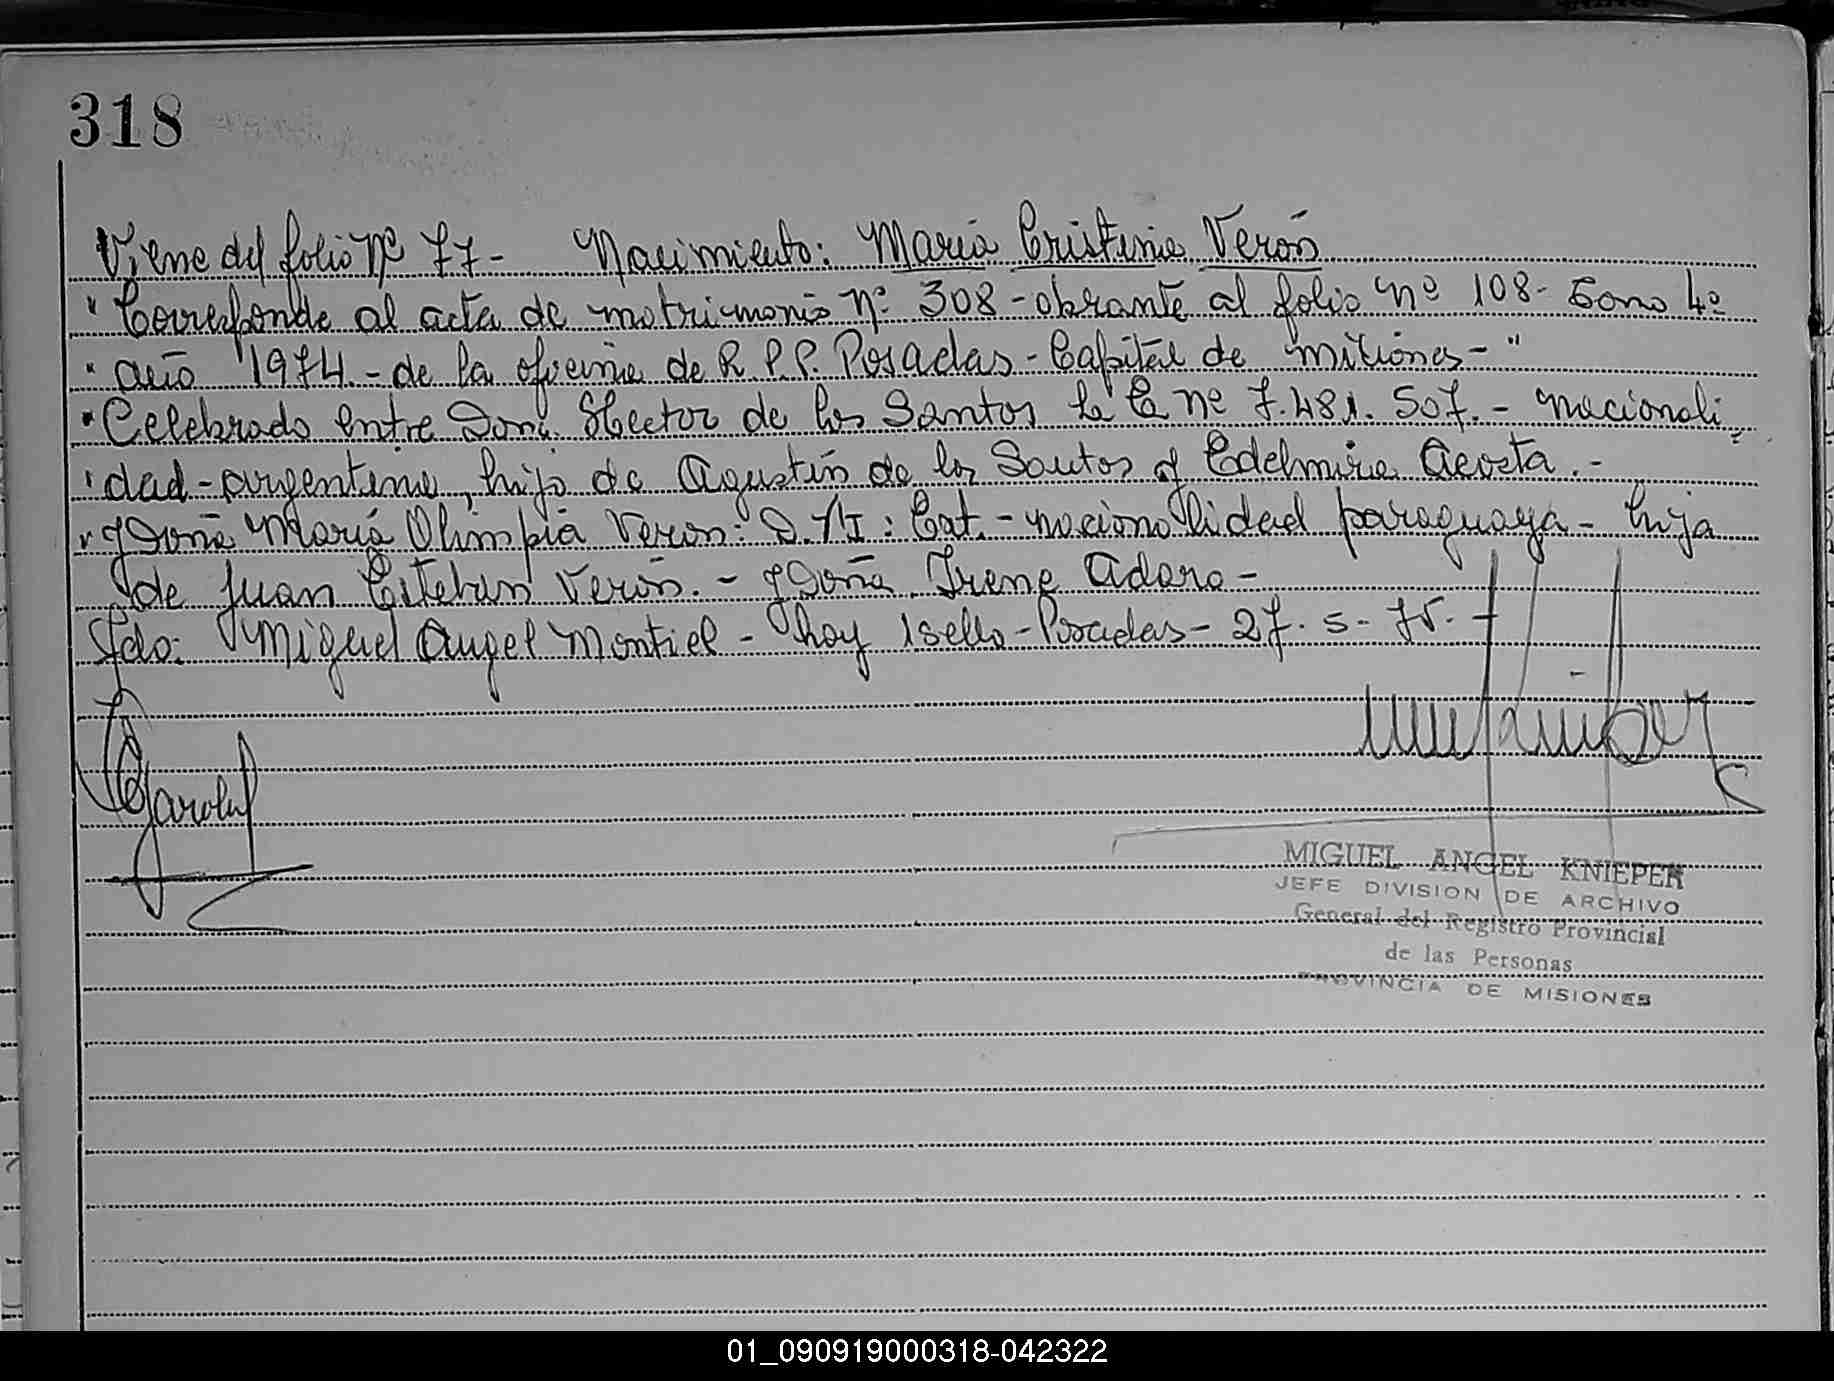 318
Viene del folio Nº 77- Nacimiento: María Cristina Verón
"Corresponde al acta de matrimonio Nº 308 - obrante al folio Nº 108 - Tomo 4º
" año 1974.- de la oficina de R. P. P. Posadas - Capital de Misiones - "
" Celebrado entre Don: Hector de los Santos L. E. Nº 7.481.507.- nacionali
" dad - argentina, hijo de Agustín de los Santos y Edelmira Acosta.-
" y Doña María Olimpia Veron: D.N.I: Cat. - nacionalidad paraguaya - hija
de Juan Esteban Verón. - y Doña Irene Adaro -
Fdo: Miguel Angel Montiel - hay 1 sello - Posadas - 27-5-75.-
MIGUEL ANGEL KNIEPER
JEFE DIVISION DE ARCHIVO
General del Registro Provincial
de las Personas
PROVINCIA DE MISIONES
01_090919000318-042322